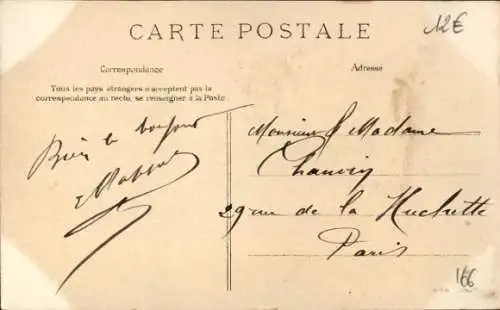 CARTE POSTALE
12€
Correspondance
Adresse
Tous les pays étrangers n'acceptent pas la
correspondance au recto, se renseigner à la Poste.
Bien le bonjour
Monsieur & Madame
Chauvin
29 rue de la Huchette
Paris
166